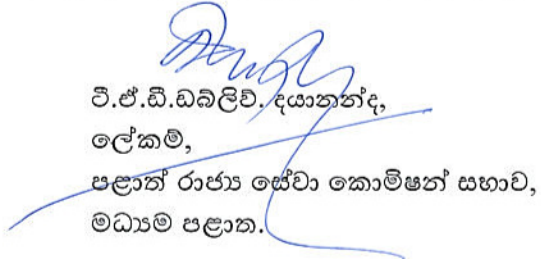 ටී.ඒ.ඩී.ඩබ්ලිව්. දයානන්ද,
ලේකම්,
පළාත් රාජ්‍ය සේවා කොමිෂන් සභාව,
මධ්‍යම පළාත.